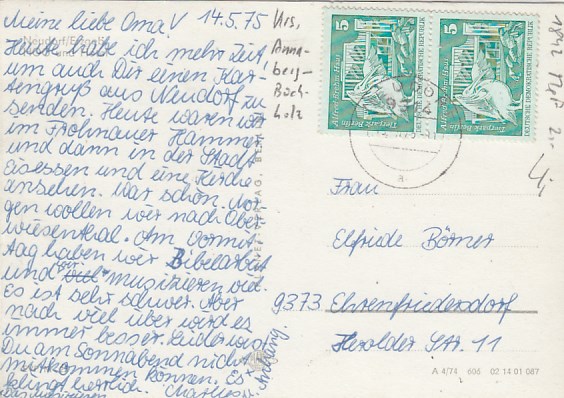 Meine liebe Oma! 14.5.75
Heute habe ich mehr Zeit,
um auch Dir einen Kar-
tengruß aus Neudorf zu
senden. Heute waren wir
im Frohnauer Hammer
und dann in der Stadt
Eisessen und eine Kirche
ansehen. War schön. Mor-
gen wollen wir nach Ober-
wiesenthal. Am Vormit-
tag haben wir Bibelarbeit
und wir musizieren viel.
Es ist sehr schwer. Aber
nach viel üben wird es
immer besser. Leider wirst
Du am Sonnabend nicht
mitkommen können. Es
klingt herrlich.
Anfang.
Krs.
Anna-
berg-
Buch-
holz
5
5
DEUTSCHE DEMOKRATISCHE REPUBLIK
DEUTSCHE DEMOKRATISCHE REPUBLIK
Alfred-Brehm-Haus
Tierpark Berlin
Alfred-Brehm-Haus
Tierpark Berlin
a
Frau
Elfriede Börner
9373 Ehrenfriedersdorf
Herolder Str. 11
A 4/74 606 02 14 01 087